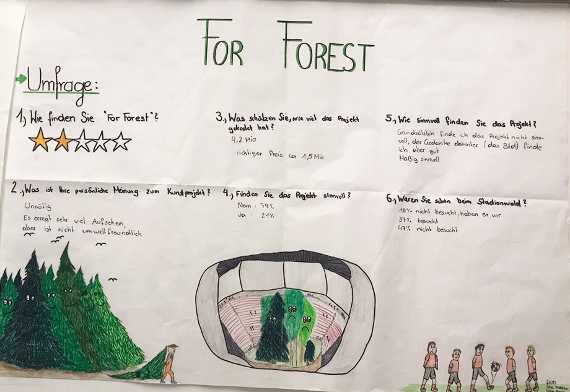 FOR FOREST
Umfrage:
1., Wie finden Sie "For Forest"?
2., Was ist Ihre persönliche Meinung zum Kunstprojekt?
Unnötig
Es erregt sehr viel Aufsehen,
aber ist nicht umweltfreundlich
3., Was schätzen Sie, wie viel das Projekt
gekostet hat?
4,2 Mio
richtiger Preis ca 1,5 Mio
4., Finden Sie das Projekt sinnvoll?
Nein : 79%
Ja : 21%
5., Wie sinnvoll finden Sie das Projekt?
Grundsätzlich finde ich das Projekt nicht sinn-
voll, der Gedanke dahinter (das Bild) finde
ich aber gut
Mäßig sinnvoll
6., Waren Sie schon beim Stadionwald?
nicht besucht, haben es vor
37% besucht
nicht besucht